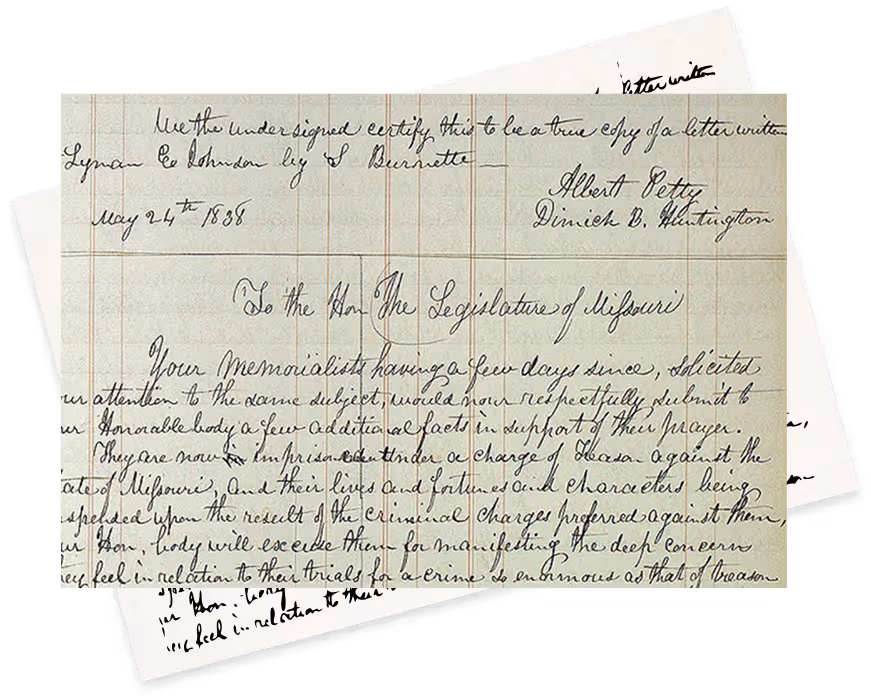 letter written
We the undersigned certify this to be a true copy of a letter written
Lyman E Johnson by S Burnette
Albert Petty
May 24th 1838
Dimick B. Huntington
To the Hon The Legislature of Missouri
Your memorialists having a few days since, solicited
ur attention to the same subject, would now respectfully submit to
ur Honorable body a few additional facts in support of their prayer.
They are now imprisoned under a charge of Treason against the
ate of Missouri, and their lives and fortunes and characters being
spended upon the result of the criminal charges preferred against them,
ur Hon, body will excuse them for manifesting the deep concern
hey feel in relation to their trials for a crime so enormous as that of treason
ur Hon, body
hey feel in relation to their